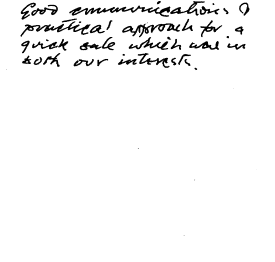 Good communications &
practical approach for a
quick sale which was in
both our interests.